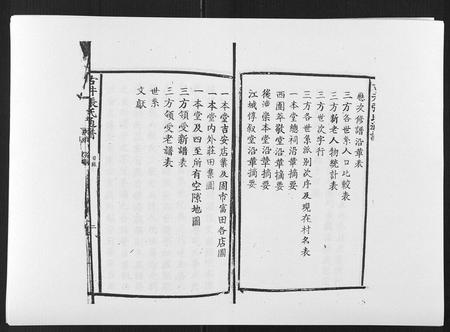 歷次修譜沿革表
三方各世系人口比較表
三方新老人物統計表
三方世次字行
三方各世系派別次序及現在村名表
一本堂總祠沿革摘要
西園萃敬堂沿革摘要
後油崇本堂沿革摘要
江城惇敘堂沿革摘要
一本堂吉安店業及固市富田各店圖
一本堂內外莊田業圖
一本堂及四至所有空隙地圖
三方領受新譜表
三方領受老譜表
世系
文獻
古井張氏通譜
目錄